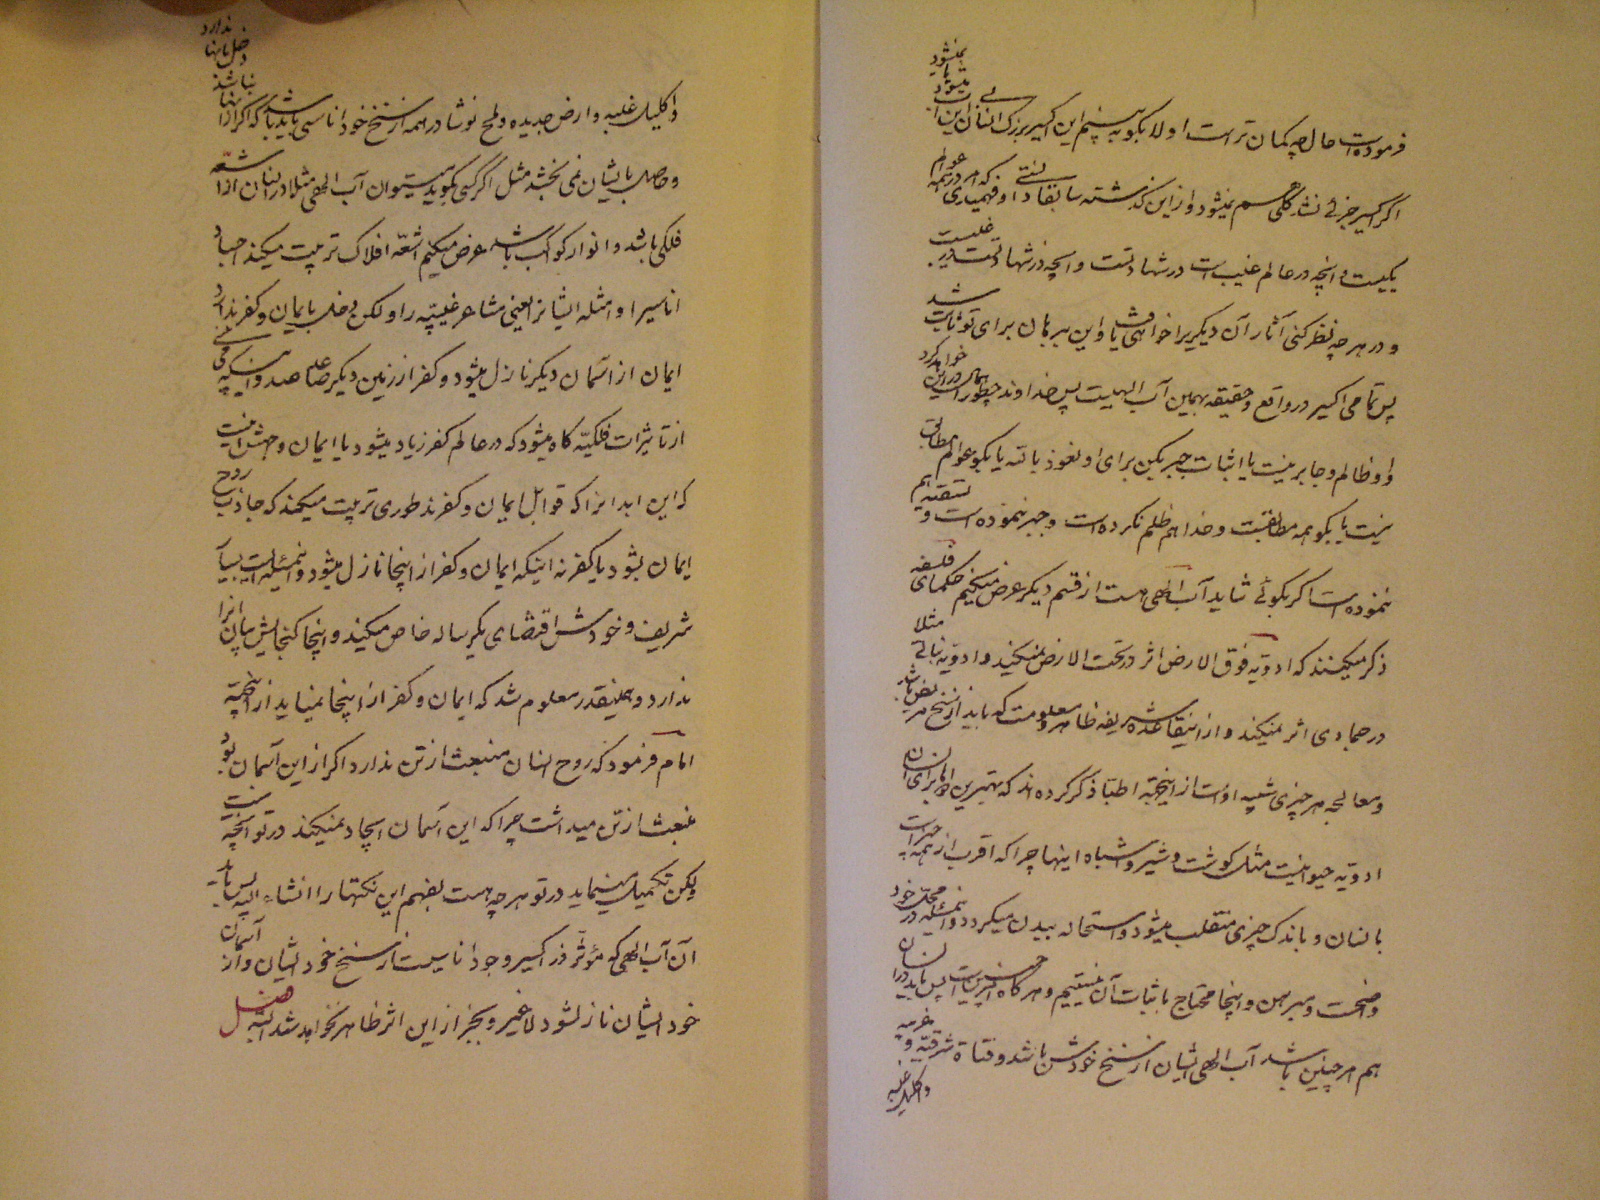 فرموده است حال چه کمان تر است اولا بگو به بینم این اکسیر بزرگ انسان این آب
اگر اکسیر جزئی نشد کلی هم نمیشود و از این گذشته سابقا دانستی و فهمیدی که امر در همه عوالم
یکیست و آنچه در عالم غیب است در شهادتست و آنچه در شهادتست در غیبست
و در هر چه نظر کنی آثار آن دیگری را خواهی یافت و این برهان برای تو ثابت شد
پس تمامی اکسیر در واقع و حقیقة بهمین آب الهیست پس خداوند چطور
او ظالم و جابر نیست یا اثبات جبر بکن برای او نعوذ بالله یا بگو عوالم مطابق
نیست یا بگو همه مطابقست و خدا هم ظلم نکرده است و جبر ننموده است و
ننموده است اگر بگوئی شاید آب الهی هست از قسم دیگر عرض میکنیم حکمای فلسفه
ذکر میکنند که ادویه فوق الارض اثر در تحت الارض نمیکنید و ادویه نباتی مثلا
در جمادی اثر نمیکند و از اینقاعده شریفه ظاهر و معلومست که باید از سنخ مریض باشد
و معالجه هر چیزی شبیه اوست از اینجهة اطبا ذکر کرده اند که بهترین دواها برای انسان
ادویه حیوانیست مثل گوشت و شیر و اشباه اینها چرا که اقرب از همه است
بانسان و باندک چیزی منقلب میشود و استحاله ببدن میگردد و اینمسئله در محل خود
واضحست و مبرهن و اینجا محتاج باثبات آن نیستیم و هرگاه چنین است پس باید در انسان
هم هر چنین باشد آب الهی ایشان از سنخ خودشان باشد و فتاة شرقیه و غربیه
و اکلیل غلبه
و اکلیل غلبه و ارض جدیده و ملح نوشادر همه از سنخ خود اناسی باید باشد که اگر از آنها نباشد دخل بانها ندارد
و حاصلی بایشان نمی بخشد مثل اگر کسی بگوید میتوان آب الهی مثلا در انسان از اشعه
فلکی باشد و انوار کواکب باشد عرض میکنیم اشعه افلاک تربیت میکند اجساد
اناسی را و امثله ایشانرا یعنی مشاعر غیبیه را و لکن دخلی بایمان و کفر ندارد
ایمان از آسمان دیگر نازل میشود و کفر از زمین دیگر صاعد
از تاثیرات فلکیه گاه میشود که در عالم کفر زیاد میشود یا ایمان وجهش اینست
که این ابدانرا که قوابل ایمان و کفرند طوری تربیت میکند که جاذب روح
ایمان بشود یا کفر نه اینکه ایمان و کفر از اینجا نازل میشود و اینمسئله ایست بسیار
شریف و خودش اقتضای یک رساله خاص میکند و اینجا گنجایش بیان آنرا
ندارد و همینقدر معلوم شد که ایمان و کفر از اینجا نمیاید از اینجهة
امام فرمود که روح انسان منبعث از تن ندارد اگر از این آسمان بود
منبعث از تن میداشت چرا که این آسمان ایجاد نمیکند در تو آنچه نیست
و لکن تکمیل مینماید در تو هر چه هست بفهم این نکتها را انشاء الله پس باید
آن آب الهی که مؤثر در اکسیر وجود اناسیست از سنخ خود ایشان و از آسمان
خود ایشان نازل شود لا غیر و بجز از این اثر ظاهر نخواهد شد البته فصل